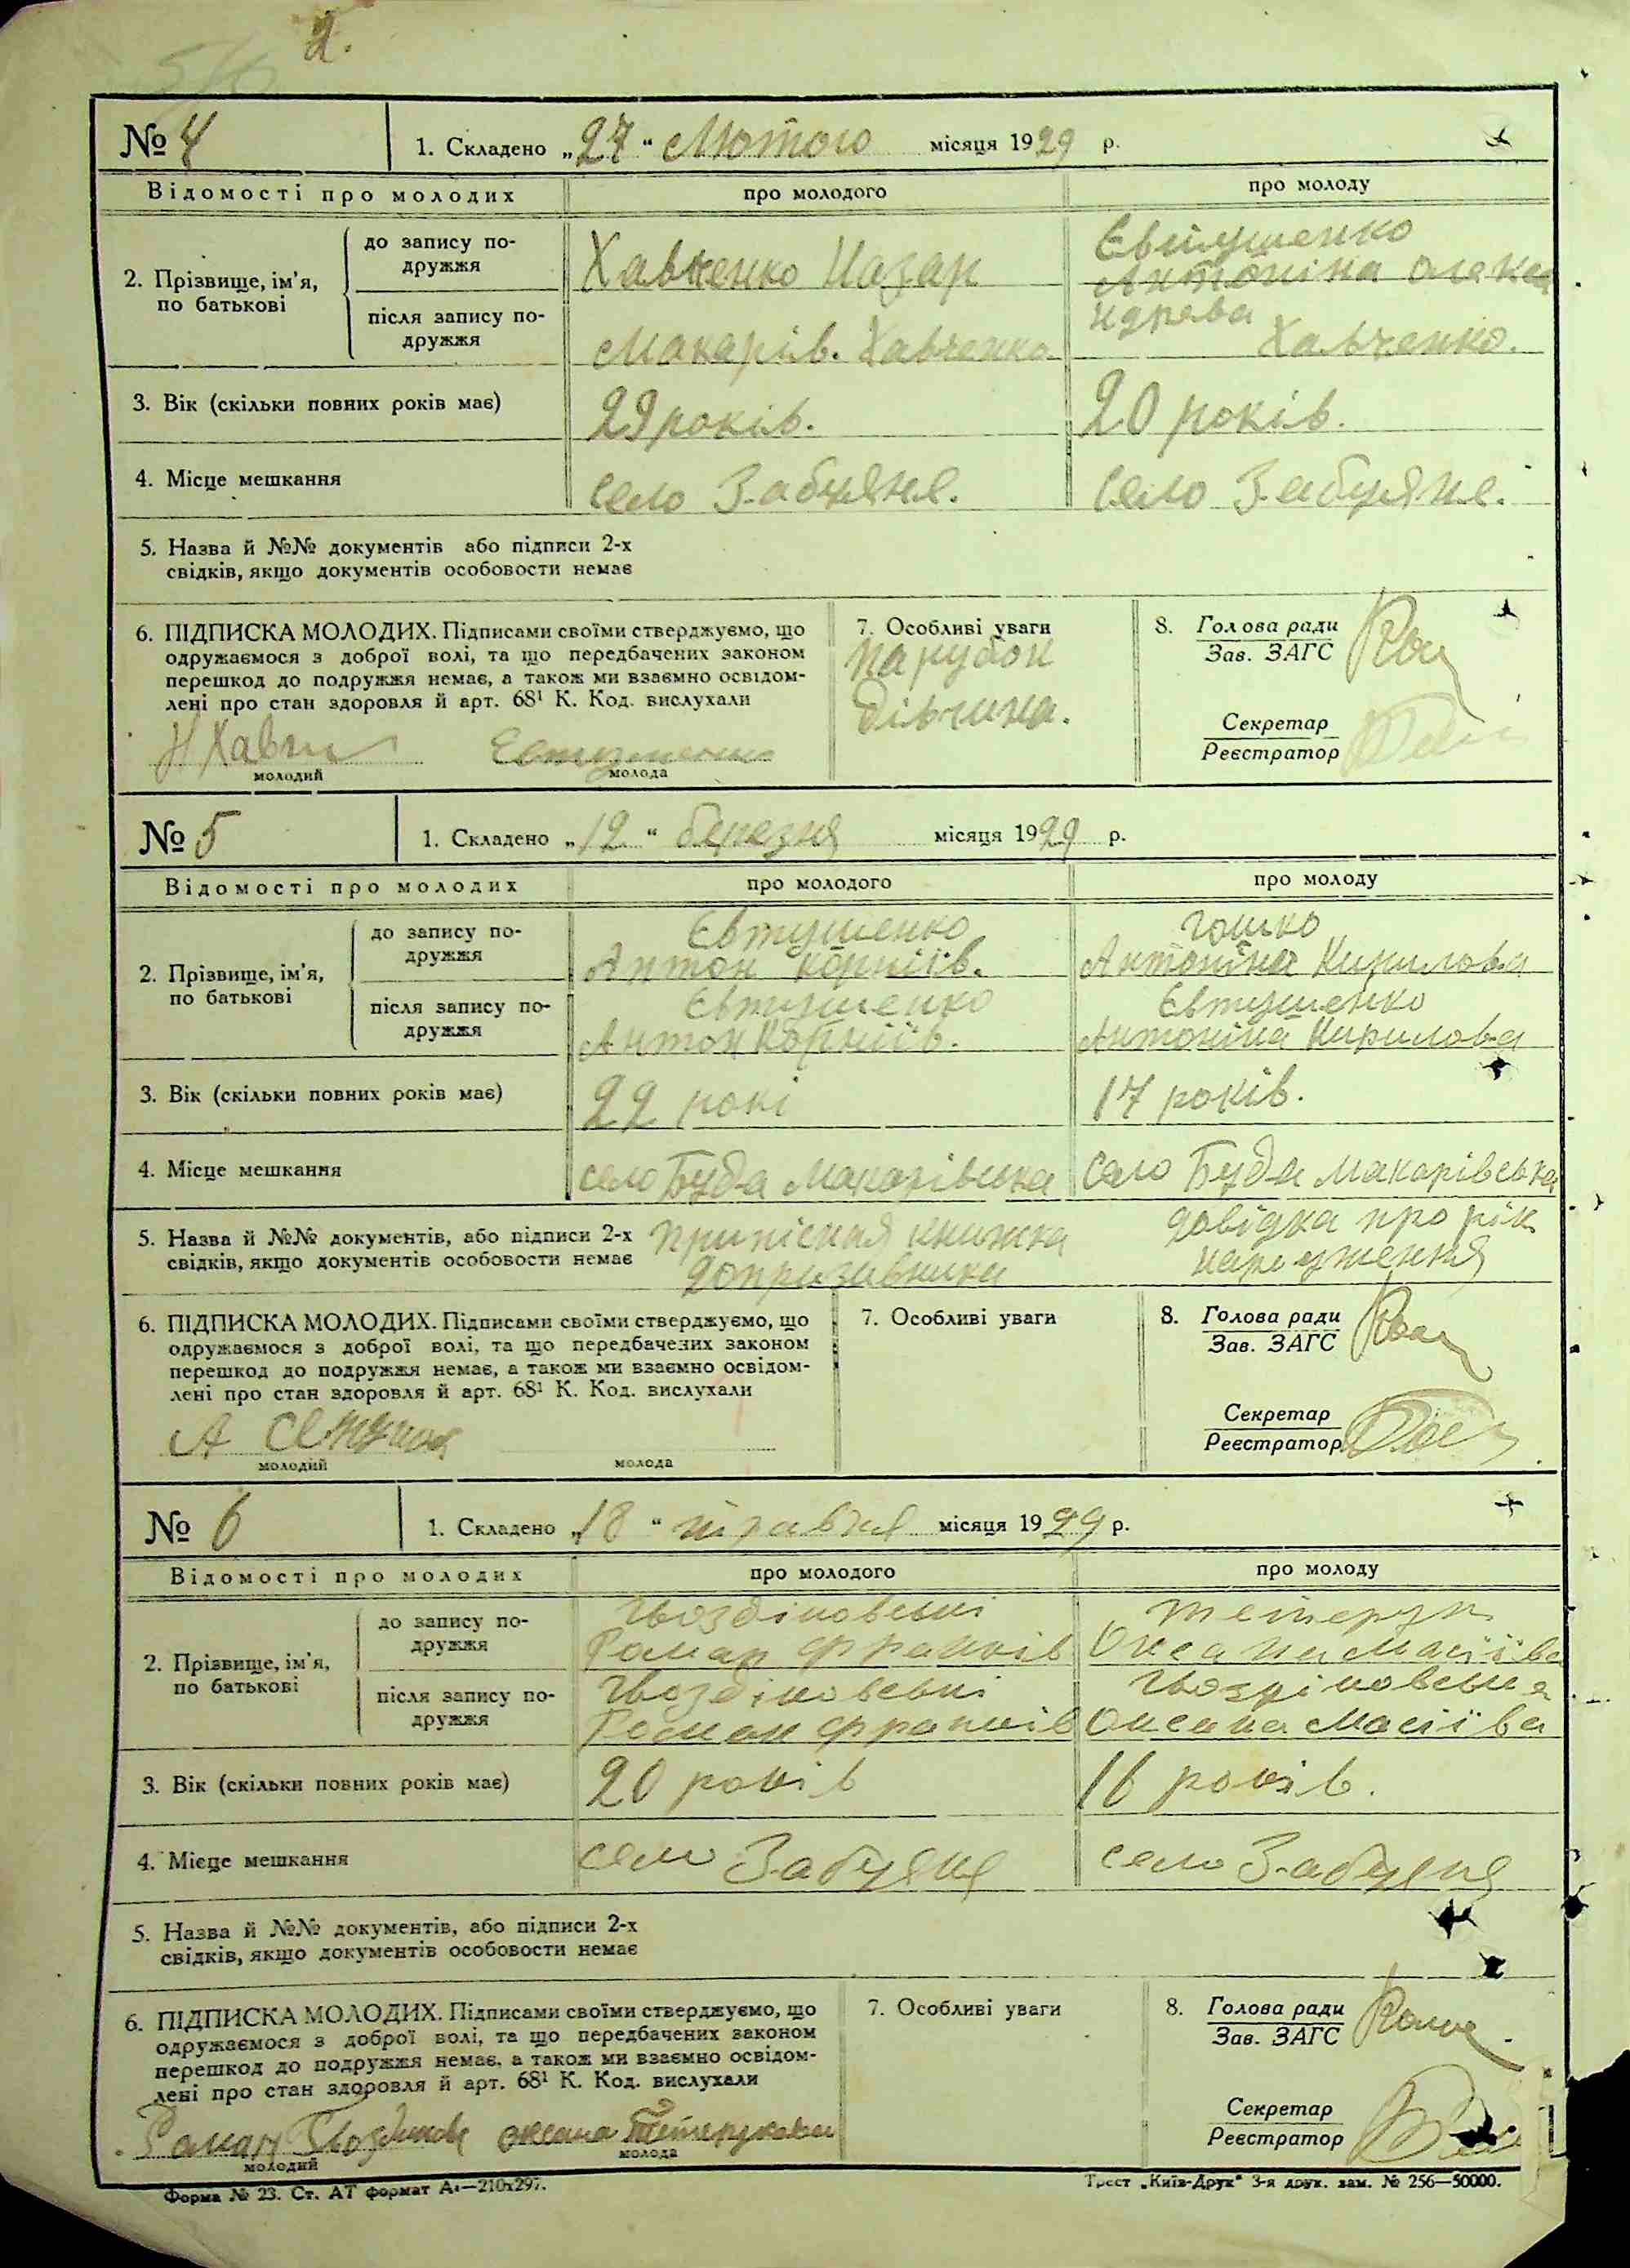 2.
№ 4
1. Складено „27“ Лютого місяця 1929 р.
Відомості про молодих
про молодого
про молоду
2. Прізвище, ім'я,
по батькові
до запису по-
дружжя
Хавченко Назар
Євтушенко
Антоніна Олекса
ндрова
після запису по-
дружжя
Макарів. Хавченко
Хавченко.
3. Вік (скільки повних років має)
29 років.
20 років.
4. Місце мешкання
село Забуяне.
село Забуяне.
5. Назва й №№ документів або підписи 2-х
свідків, якщо документів особовости немає
6. ПІДПИСКА МОЛОДИХ. Підписами своїми стверджуємо, що
одружаємося з доброї волі, та що передбачених законом
перешкод до подружжя немає, а також ми взаємно освідом-
лені про стан здоровля й арт. 68¹ К. Код. вислухали
Н Хавч
Євтушенко
молодий
молода
7. Особливі уваги
парубок
дівчина.
8. Голова ради
Зав. ЗАГС
Секретар
Реєстратор
№ 5
1. Складено „12“ березня місяця 1929 р.
Відомості про молодих
про молодого
про молоду
2. Прізвище, ім'я,
по батькові
до запису по-
дружжя
Євтушенко
Антон Корніїв.
Гошко
Антоніна Кирилова
після запису по-
дружжя
Євтушенко
Антон Корніїв.
Євтушенко
Антоніна Кирилова
3. Вік (скільки повних років має)
22 рокі
17 років.
4. Місце мешкання
село Буда Макарівська
село Буда Макарівська
5. Назва й №№ документів, або підписи 2-х
свідків, якщо документів особовости немає
припісная книжка
допризавника
довідка про рік
народження
6. ПІДПИСКА МОЛОДИХ. Підписами своїми стверджуємо, що
одружаємося з доброї волі, та що передбачених законом
перешкод до подружжя немає, а також ми взаємно освідом-
лені про стан здоровля й арт. 68¹ К. Код. вислухали
А
молодий
молода
7. Особливі уваги
8. Голова ради
Зав. ЗАГС
Секретар
Реєстратор
№ 6
1. Складено „18“ травня місяця 1929 р.
Відомості про молодих
про молодого
про молоду
2. Прізвище, ім'я,
по батькові
до запису по-
дружжя
Гвоздіковські
Роман Франків
Тетерук
Оксана Масіїва
після запису по-
дружжя
Гвоздіковські
Роман Франків
Гвоздіковська
Оксана Масіїва
3. Вік (скільки повних років має)
20 років
16 років.
4. Місце мешкання
село Забуяня
село Забуяня
5. Назва й №№ документів, або підписи 2-х
свідків, якщо документів особовости немає
6. ПІДПИСКА МОЛОДИХ. Підписами своїми стверджуємо, що
одружаємося з доброї волі, та що передбачених законом
перешкод до подружжя немає, а також ми взаємно освідом-
лені про стан здоровля й арт. 68¹ К. Код. вислухали
Роман Гвоздиков оксана Тетерукова
молодий
молода
7. Особливі уваги
8. Голова ради
Зав. ЗАГС
Секретар
Реєстратор
Форма № 23. Ст. АТ формат А₄—210х297.
Трест „Київ-Друк“ 3-я друк. зам. № 256—50000.